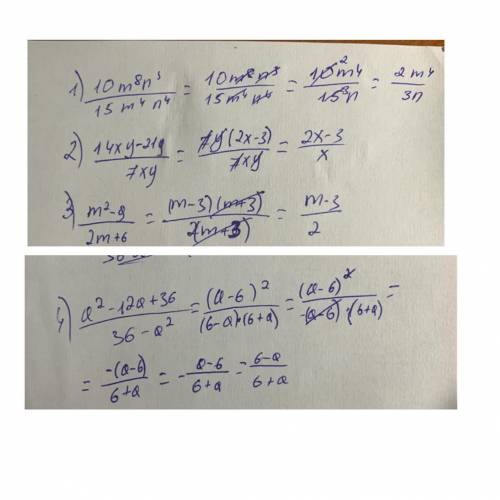 1) 10m⁸n³/15m⁴n⁴ = 10m⁸n³/15m⁴n⁴ = 10²m⁴/15³n = 2m⁴/3n
2) 14xy-21y/7xy = 7y(2x-3)/7xy = 2x-3/x
3) m²-9/2m+6 = (m-3)(m+3)/2(m+3) = m-3/2
4) a²-12a+36/36-a² = (a-6)²/(6-a)·(6+a) = (a-6)²/-(a-6)·(6+a) =
= -(a-6)/6+a = -a-6/6+a = 6-a/6+a